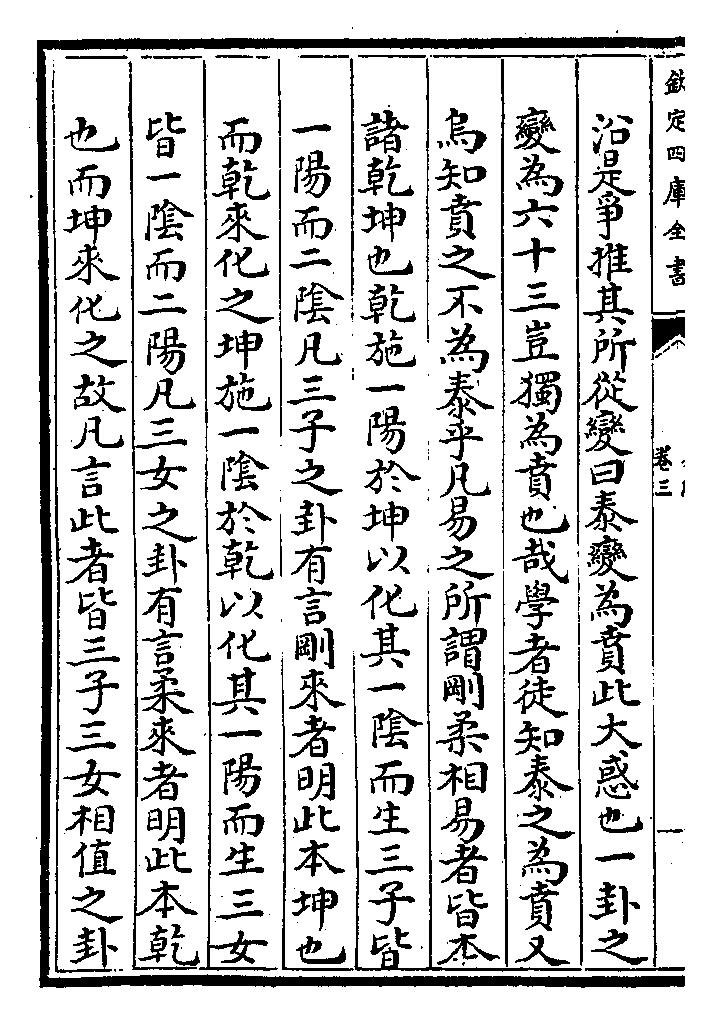 欽定四庫全書
卷三
沿是爭推其所從變曰泰變為賁此大惑也一卦之
變為六十三豈獨為賁也哉學者徒知泰之為賁又
烏知賁之不為泰乎凡易之所謂剛柔相易者皆本
諸乾坤也乾施一陽於坤以化其一陰而生三子皆
一陽而二陰凡三子之卦有言剛來者明此本坤也
而乾來化之坤施一陰於乾以化其一陽而生三女
皆一陰而二陽凡三女之卦有言柔來者明此本乾
也而坤來化之故凡言此者皆三子三女相值之卦